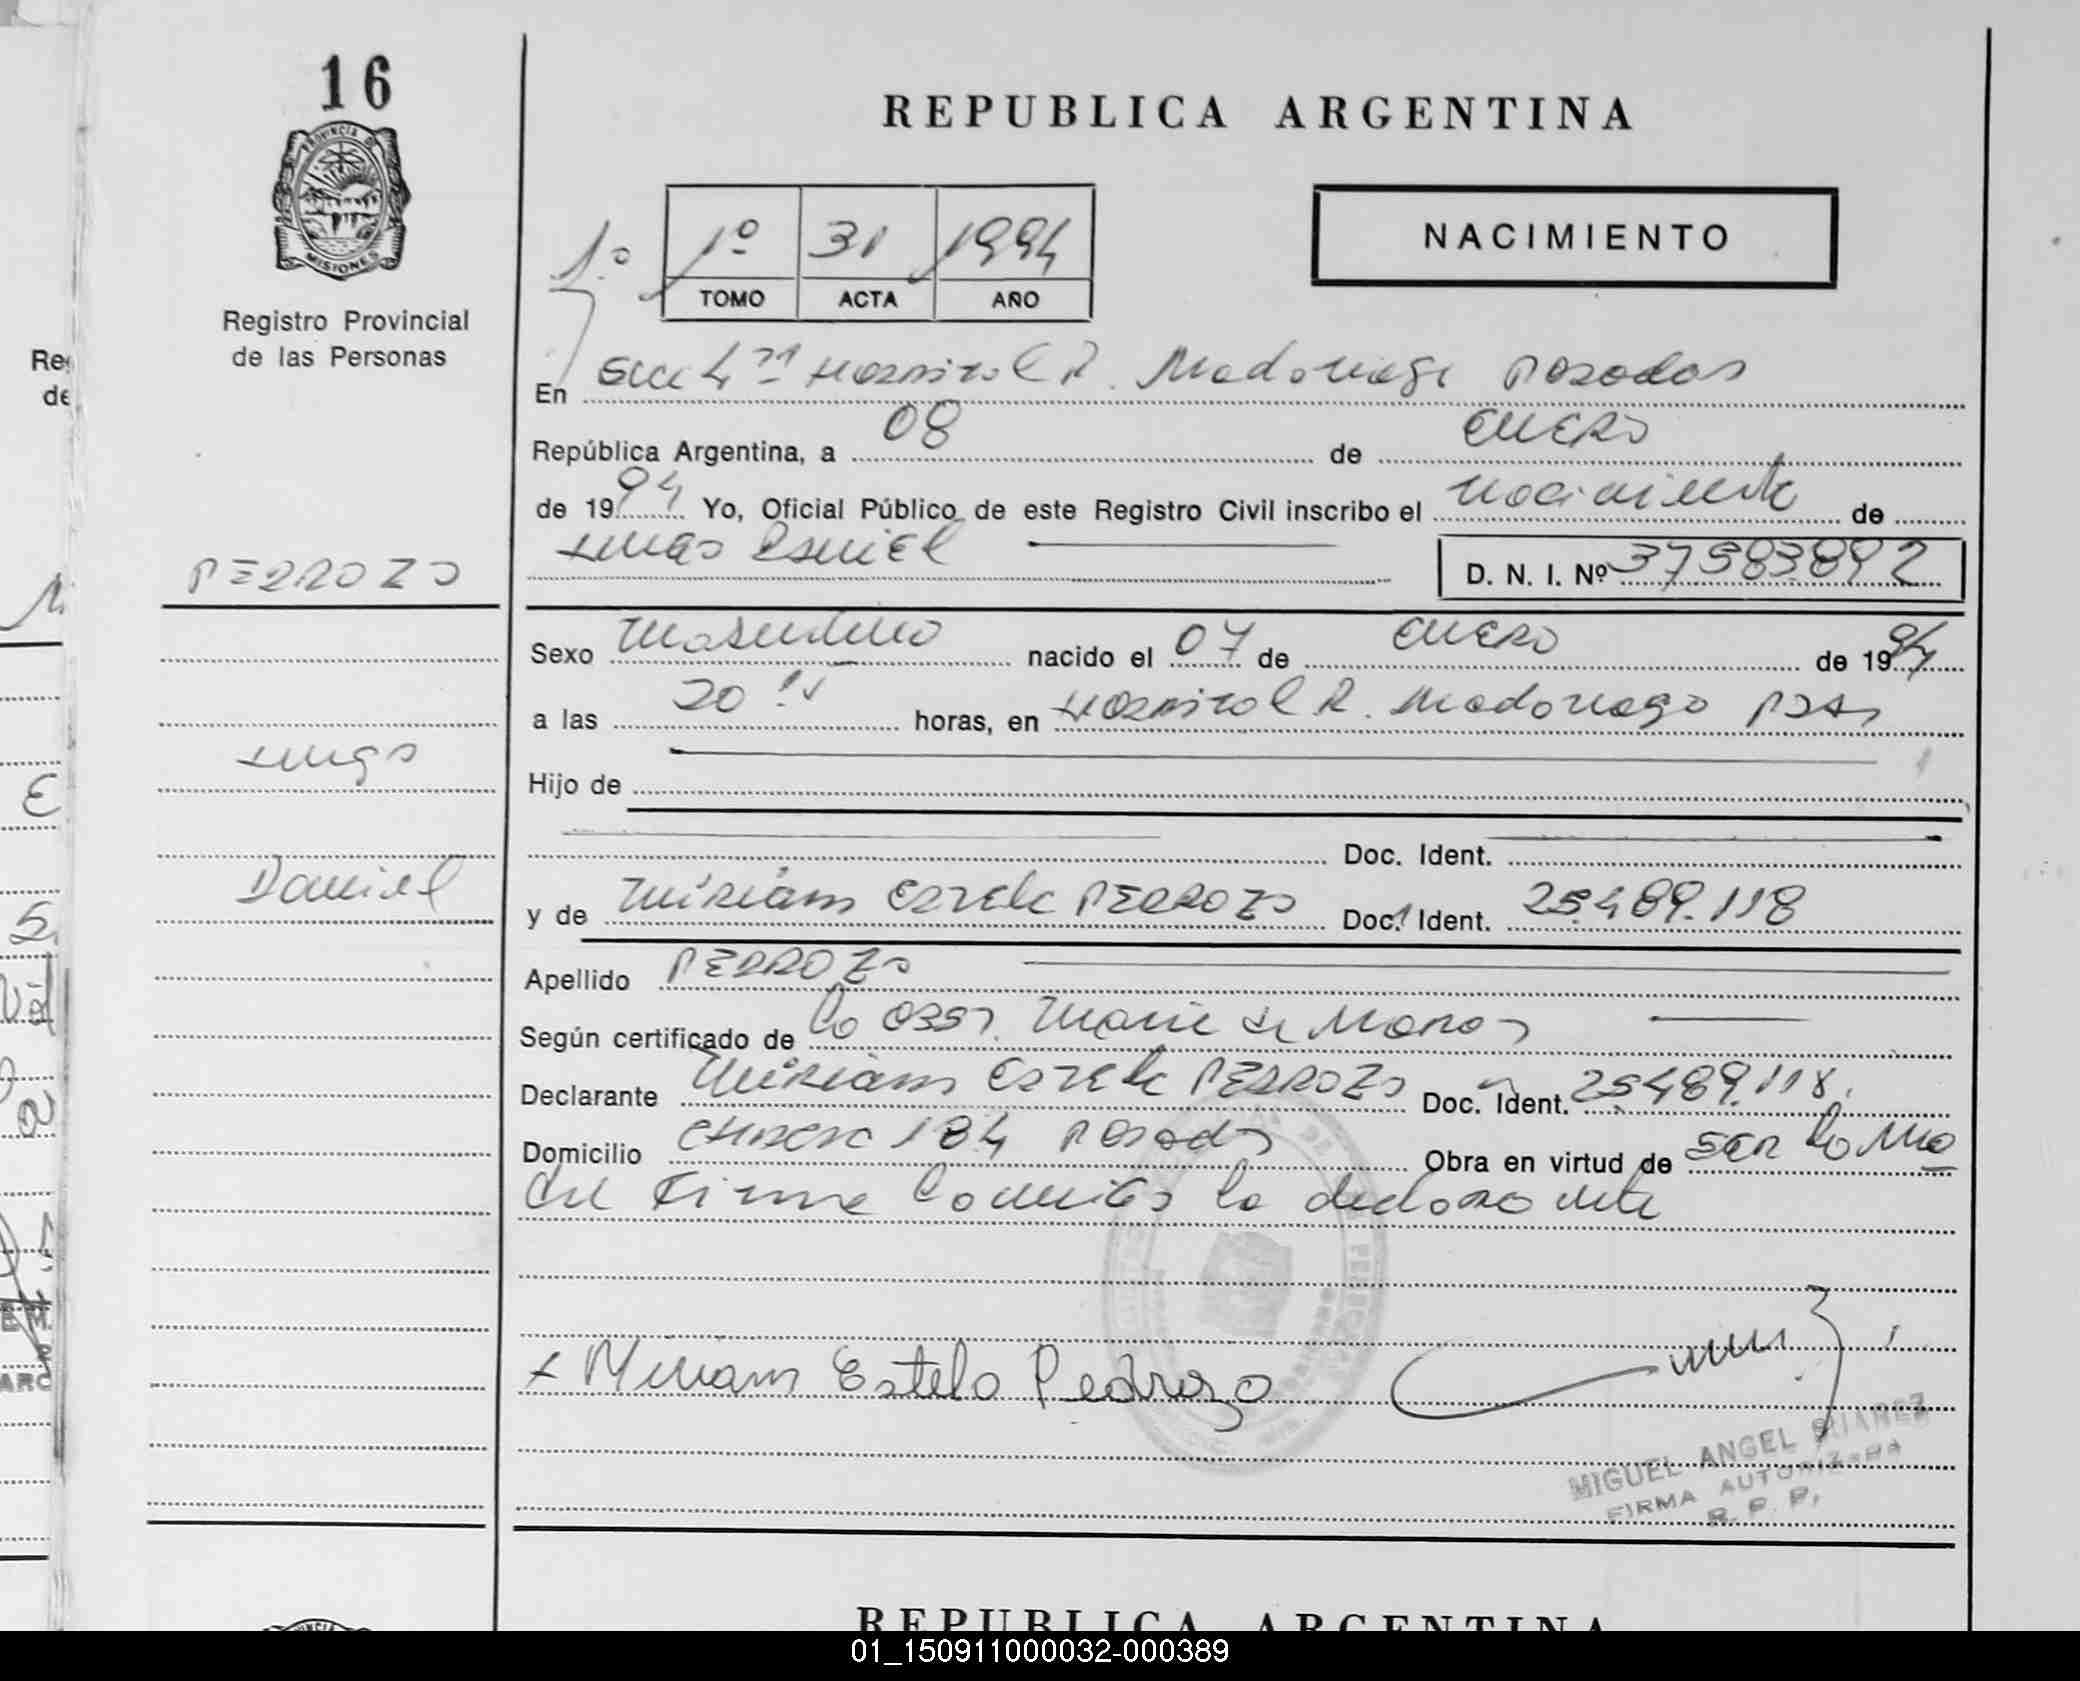 16
PROVINCIA DE
MISIONES
Registro Provincial
de las Personas
REPUBLICA ARGENTINA
NACIMIENTO
1º 1º 31 1994
TOMO ACTA AÑO
En Hospital R. Madariaga Posadas
República Argentina, a 08 de ENERO
de 1994 Yo, Oficial Público de este Registro Civil inscribo el nacimiento de
Hugo Daniel D. N. I. Nº
PEDROZO
Hugo
Daniel
Sexo Masculino nacido el 07 de ENERO de 1994
a las 20 hs horas, en Hospital R. Madariaga Pdas
Hijo de
Doc. Ident.
y de Miriam Estela PEDROZO Doc. Ident. 25.489.118
Apellido PEDROZO
Según certificado de la Obst. Maria
Declarante Miriam Estela PEDROZO Doc. Ident. 25.489.118.
Domicilio 184 Posadas Obra en virtud de ser la ma
dre Firma la declarante
x Miriam Estela Pedrozo
MIGUEL ANGEL SUAREZ
FIRMA AUTORIZADA
R. P. P.
REPUBLICA ARGENTINA
01_150911000032-000389